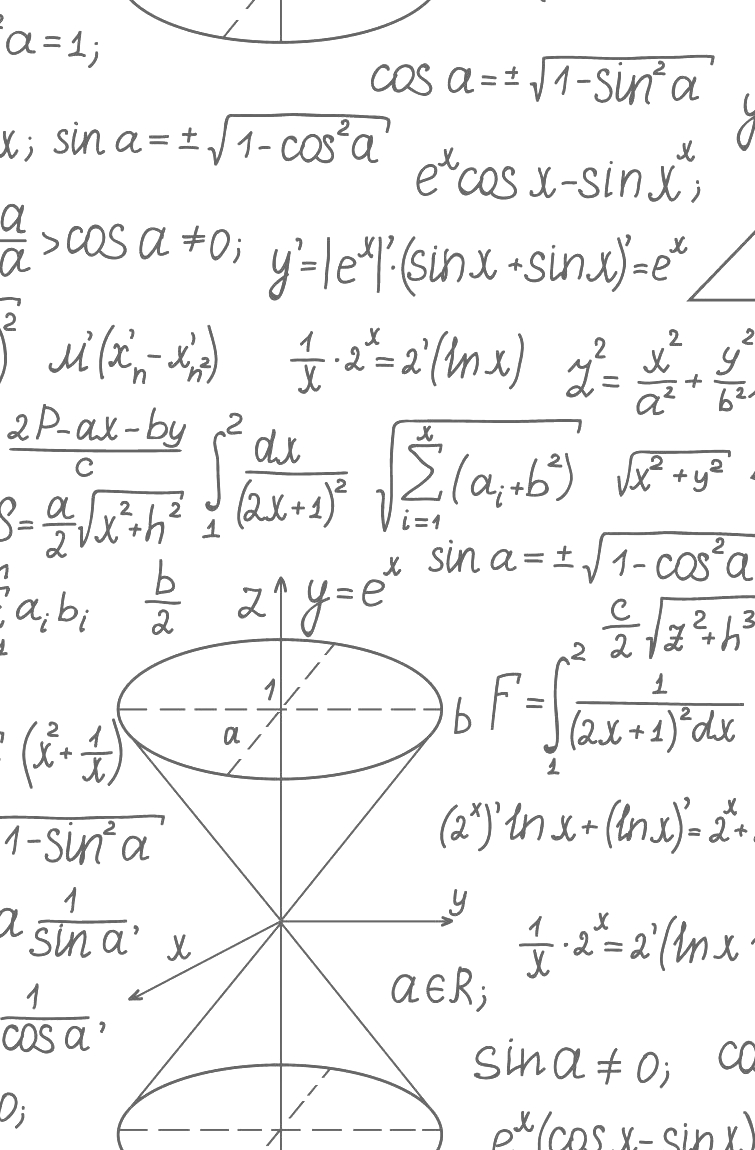 ²a = 1;
cos a = ± √(1 - sin² a)
x; sin a = ± √(1 - cos² a)
e^x cos x - sin x^x;
a/a > cos a ≠ 0;
y' = |e^x|'·(sin x + sin x)' = e^x
)²
𝓜'(x'_n - x'_n²)
1/x · 2^x = 2'(ln x)
z² = x²/a² + y²/b²
(2P - ax - by)/c
∫₁² dx/(2x+1)²
√(∑_{i=1}^x (a_i + b²))
√(x² + y²)
S = a/2 √(x² + h²)
sin a = ± √(1 - cos² a)
a_i b_i
b/2
z
y = e^x
c/2 √(z² + h³)
1
a
b
F = ∫₁² 1/((2x+1)² dx)
(x² + 1/x)
1 - sin² a
(2^x)' ln x + (ln x)' = 2^x +
a 1/(sin a),
x
y
1/x · 2^x = 2'(ln x
1/(cos a),
a ∈ R;
sin a ≠ 0;
0;
e^x(cos x - sin x)